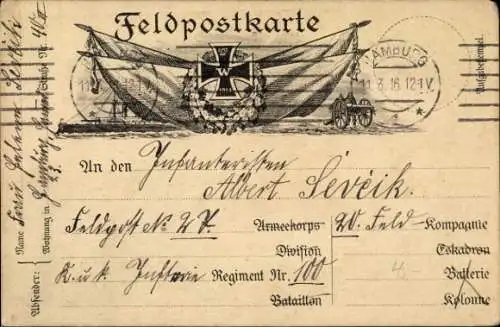 Feldpostkarte
HAMBURG
11.3.16.12-1V.
W
1914
Aufgabestempel.
An den Infanteristen
Albert Sevčik.
Feldpost No
Armeekorps
20. Feld-Kompagnie
Division
Eskadron
K. u. k. Inftrie Regiment Nr. 100
Batterie
Bataillon
Kolonne
Absender:
Name Frau Helene Sevčik
Wohnung in Hamburg
Straße Nr.